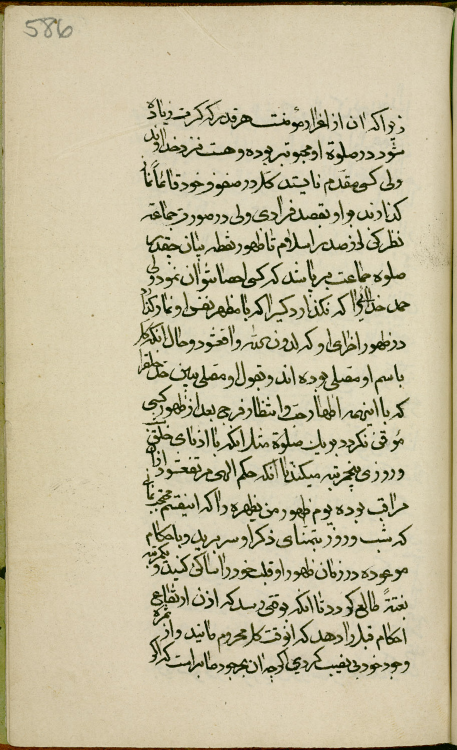 586
زیرا که ان از افراد مؤمنت هر قدر که کثرت زیاده
شود در صلوة او محبوبتر بوده و هست نزد خداوند
ولی کسی مقدم نایستد کل در صفوف خود قائماً نماز
کذارند و او بقصد فرادی ولی در صورت جماعت
نظر کن از صدر اسلام تا ظهور نقطه بیان چقدر
صلوة جماعت بر پا شد که کسی احصا نتوان نمود ولی
حمد خدائیرا که نکذارد کسیرا که با مظهر نفس او نماز کذارد
در ظهور اخرای او که بدون بینه واقع شود و حال انکه کل
باسم او مصلی بوده اند و بقول او مصلی ببین حد خلق را
که با اینهمه اظهار حب و انتظار فرج بعد از ظهور کسی
موفق نکردد بیک صلوة مثل انکه با ادنای خلق
در روزی پنج مرتبه میکند با انکه حکم الهی مرتفع شود
مراقب بوده یوم ظهور من یظهره را که اینقسم محتجب نمانی
که شب و روز بتمنای ذکر او سر برید و باحکام
موعوده در زمان ظهور او قلب خود را ساکن کنید و
بغتةً طالع کردد تا انکه بوقتی رسد که اذن ارتفاع
احکام قبل را دهد که انوقت کل محروم مانید و از ثمره
وجود خود بی نصیب کردی کرچه ان بر جود صابر است که اکر